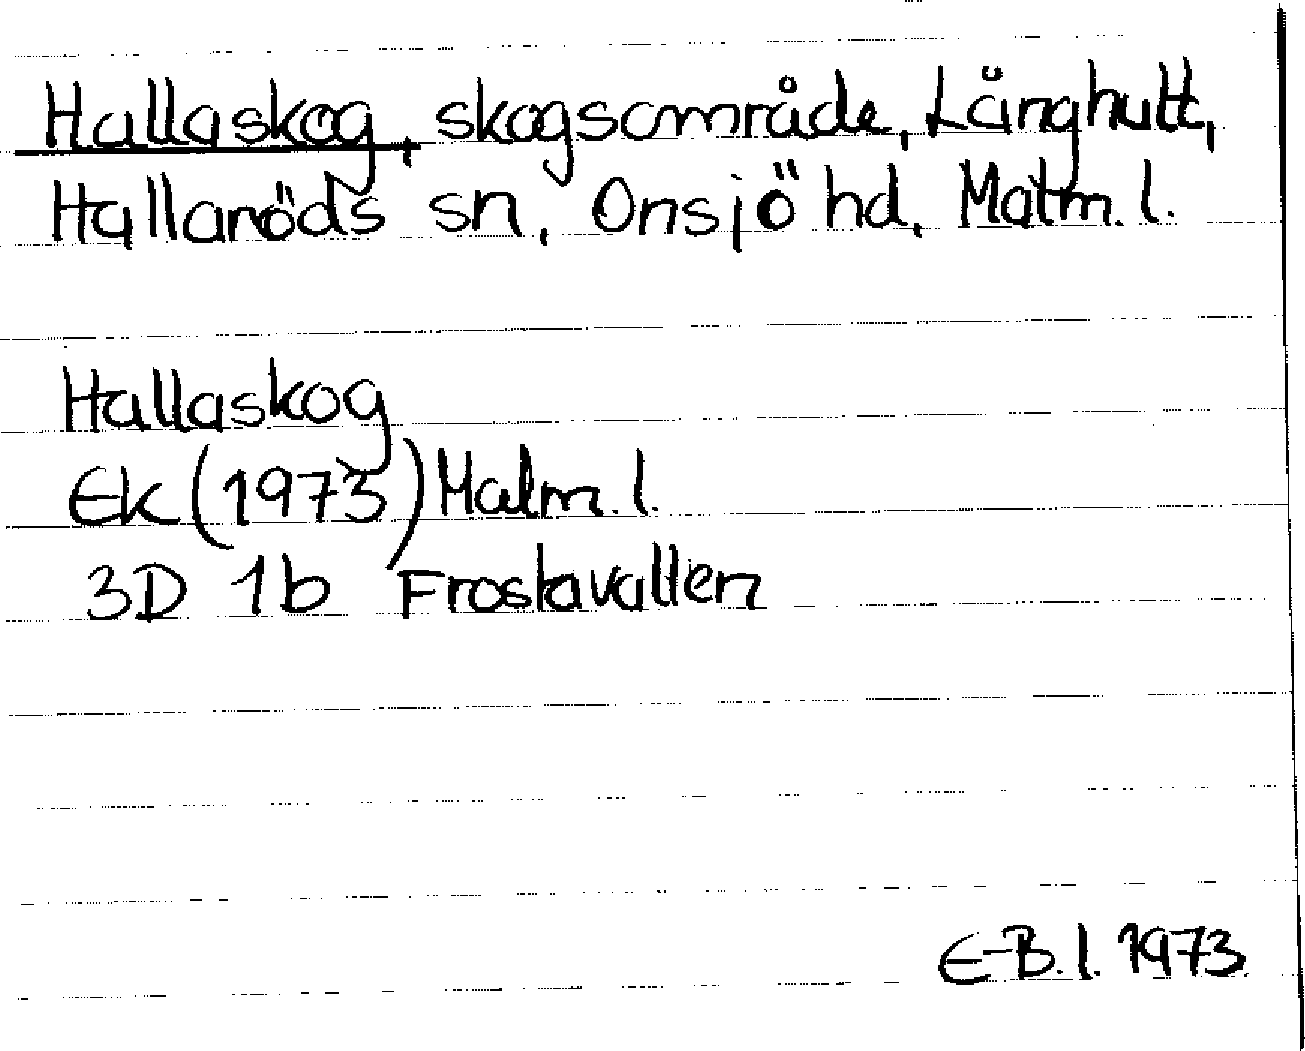 Hallaskog, skogsområde, Långhult,
Hallaröds sn, Onsjö hd, Malm. l.
Hallaskog
Ek (1973) Malm. l.
3D 1b Frostavallen
E-B. l. 1973